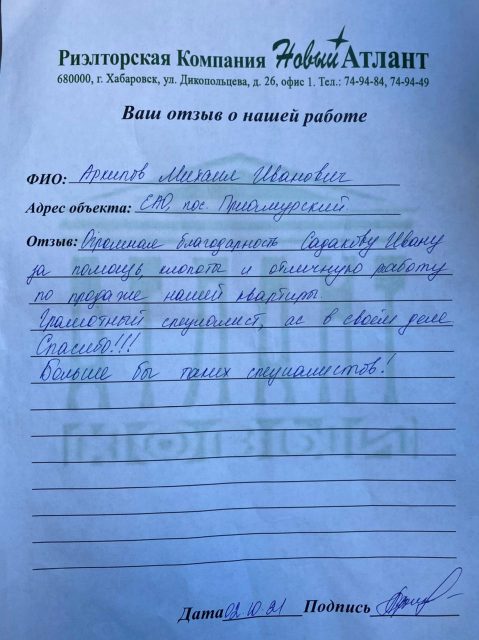 Риэлторская Компания Новый Атлант
680000, г. Хабаровск, ул. Дикопольцева, д. 26, офис 1. Тел.: 74-94-84, 74-94-49
Ваш отзыв о нашей работе
ФИО: Архипов Михаил Иванович
Адрес объекта: ЕАО, пос. Приамурский
Отзыв: Огромная благодарность Садакову Ивану
за помощь, хлопоты и отличную работу
по продаже нашей квартиры.
Грамотный специалист, ас в своём деле
Спасибо!!!
Больше бы таких специалистов!
Дата 02.10.21 Подпись